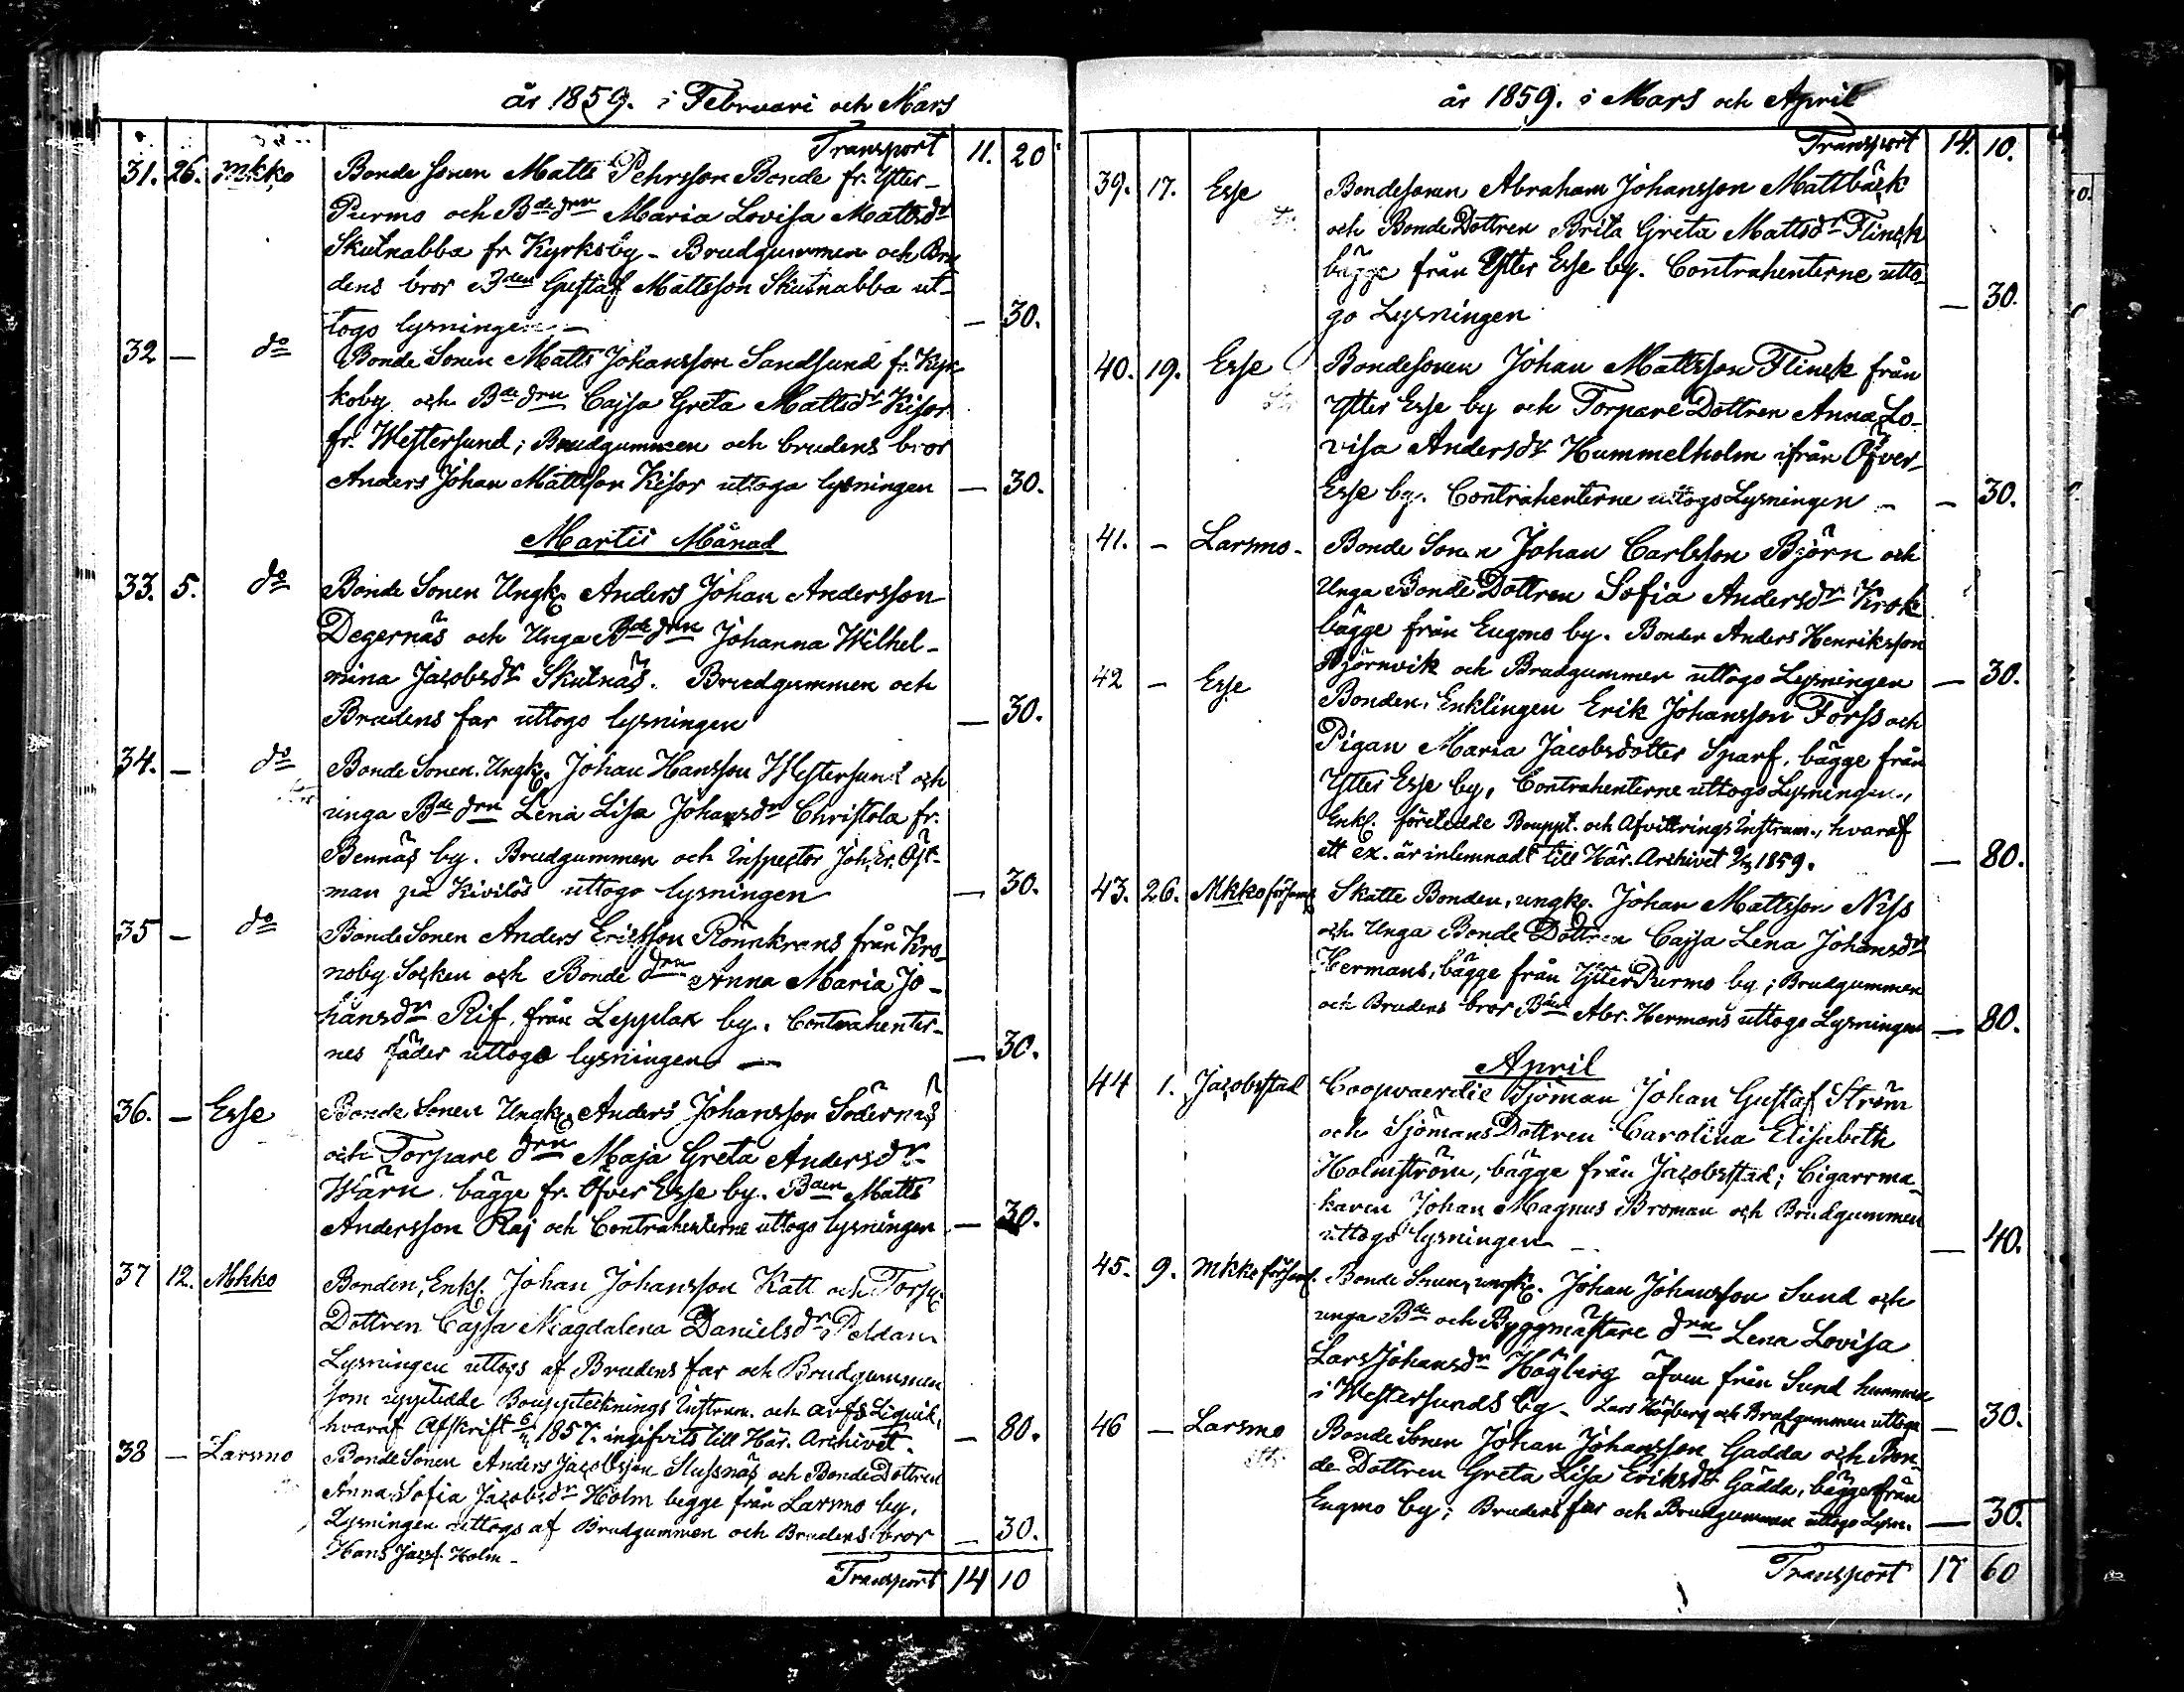 år 1859. i Februari och Mars
Transport 11. 20
31. 26. Mkko Bonde Sonen Matts Pehrsson Bonde fr. Ytter-
Purmo och Bde drn Maria Lovisa Mattsdr
Skutnabba fr Kyrksby - Brudgummen och Bru
dens bror Bden Gustaf Mattsson Skutnabba ut-
togo lysningen — — 30.
32 — do Bonde Sonen Matts Johansson Sandsund fr. Kyr
koby och Bde drn Cajsa Greta Mattsdr Kisor
fr. Westersund; Brudgummen och brudens bror
Anders Johan Mattsson Kisor uttogo lysningen — 30.
Martii Månad
33. 5. do Bonde Sonen Ungk. Anders Johan Andersson
Degernäs och Unga Bde drn Johanna Wilhel-
mina Jacobsdr Skutnäs. Brudgummen och
Brudens far uttogo lysningen — 30.
34. — do Bonde Sonen Ungk. Johan Hansson Westersund och
unga Bde drn Lena Lisa Johansdr Christola fr.
Bennäs by. Brudgummen och Inspector Joh. Er. Öst-
man på Kivilös uttogo lysningen — 30.
35 — do Bonde Sonen Anders Ericsson Rönnkrans från Kro-
noby Socken och Bonde drn Anna Maria Jo-
hansdr Rif, från Lepplax by. Contrahenter-
nes fäder uttogo lysningen — — 30.
36. — Esse Bonde Sonen Ungk. Anders Johansson Södernäs
och Torpare drn Maja Greta Andersdr
Wärn bägge fr. Öfver Esse by. Bden Matts
Andersson Raj och Contrahenterne uttogo lysningen — 30.
37 12. Mkko Bonden, Enkl. Johan Johansson Katt och Torp.
Dottren Cajsa Magdalena Danielsdr Poldan
Lysningen uttogs af Brudens far och Brudgummen
som uppteedde Bouppteknings Instrum. och arfs Liquid,
hvaraf Afskrift 1857. ingifvits till Här. Archivet. — 80.
38 — Larsmo Bonde Sonen Anders Jacobsson Slussnäs och Bonde Dottren
Anna Sofia Jacobsdr Holm begge från Larsmo by.
Lysningen uttogs af Brudgummen och Brudens bror — 30.
Hans Jacobs. Holm -
Transport 14 10
år 1859. i Mars och April
Transport 14. 10.
39. 17. Esse Bondesonen Abraham Johansson Mattbäck
och Bonde Dottren Brita Greta Mattsdr Flinck
bägge från Ytter Esse by. Contrahenterne utto-
go Lysningen — 30.
40. 19. Esse Bondesonen Johan Mattsson Flinck från
Ytter Esse by och Torpare Dottren Anna Lo-
visa Andersdr Hummelholm ifrån Öfver-
Esse by. Contrahenterne uttogo Lysningen - — 30.
41. — Larsmo - Bonde Sonen Johan Carlsson Björn och
Unga Bonde Dottren Sofia Andersdr Krok
bägge från Eugmo by. Bonden Anders Henriksson
Björnvik och Brudgummen uttogo Lysningen — 30.
42 — Esse Bonden, Enklingen Erik Johansson Forss och
Pigan Maria Jacobsdotter Sparf, bägge från
Ytter Esse by, Contrahenterne uttogo Lysningen,
Enkl. företeedde Bouppt. och Afvittrings Instrum., hvaraf
ett ex. är inlemnadt till Här. Archivet 1859. — 80.
43. 26. Mkko församl. Skatte Bonden, ungk. Johan Mattsson Niss
och Unga Bonde Dottren Cajsa Lena Johansdr
Hermans, bägge från Ytter Purmo by; Brudgummen
och Brudens bror Bden Abr. Hermans uttogo Lysningen — 80.
April
44 1. Jacobstad Coopvaerdie Sjöman Johan Gustaf Ström
och Sjömans Dottren Carolina Elisabeth
Holmström, bägge från Jacobstad; Cigarrma-
karen Johan Magnus Broman och Brudgummen
uttogo lysningen — 40.
45. 9. Mkko församl. Bonde Sonen, ungk. Johan Johansson Sund och
unga Bde och Byggmästare drn Lena Lovisa
Lars Johansdr Högberg äfven från Sund hemman
i Westersunds by - Lars Högberg och Brudgummen uttogo — 30.
46 — Larsmo Bonde Sonen Johan Johansson Gädda och Bon-
de Dottren Greta Lisa Eriksdr Gädda, bägge från
Eugmo by; Brudens far och Brudgummen uttogo Lysn. — 30.
Transport 17 60